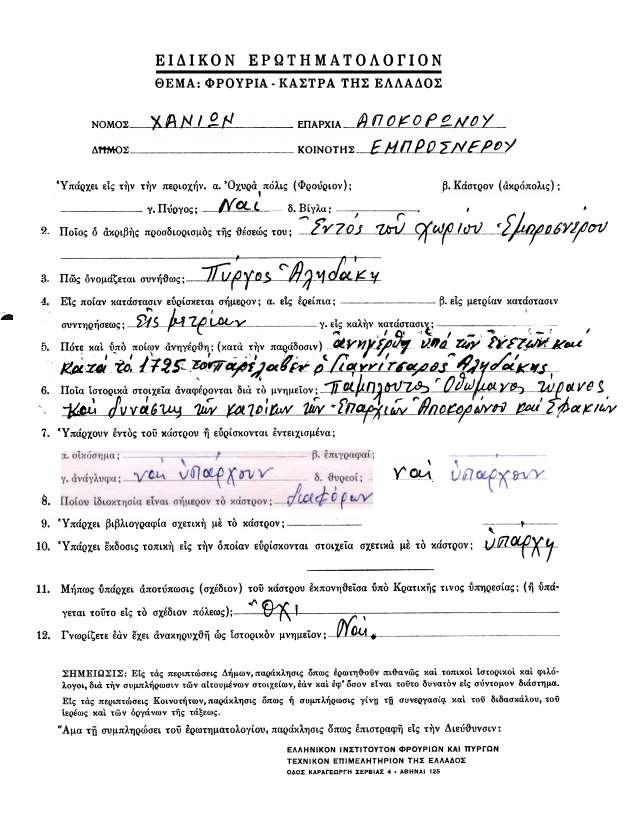 ΕΙΔΙΚΟΝ ΕΡΩΤΗΜΑΤΟΛΟΓΙΟΝ
ΘΕΜΑ: ΦΡΟΥΡΙΑ - ΚΑΣΤΡΑ ΤΗΣ ΕΛΛΑΔΟΣ
ΝΟΜΟΣ ΧΑΝΙΩΝ ΕΠΑΡΧΙΑ ΑΠΟΚΟΡΩΝΟΥ
ΔΗΜΟΣ ΚΟΙΝΟΤΗΣ ΕΜΠΡΟΣΝΕΡΟΥ
Ὑπάρχει εἰς τὴν τὴν περιοχήν. α. Ὀχυρὰ πόλις (Φρούριον); β. Κάστρον (ἀκρόπολις);
γ. Πύργος; Ναί δ. Βίγλα;
2. Ποῖος ὁ ἀκριβὴς προσδιορισμὸς τῆς θέσεώς του; Ἐντός τοῦ χωρίου Ἐμπροσνέρου
3. Πῶς ὀνομάζεται συνήθως; Πύργος Ἀληδάκη
4. Εἰς ποίαν κατάστασιν εὑρίσκεται σήμερον; α. εἰς ἐρείπια; β. εἰς μετρίαν κατάστασιν
συντηρήσεως; Εἰς μετρίαν γ. εἰς καλὴν κατάστασιν;
5. Πότε καὶ ὑπὸ ποίων ἀνηγέρθη; (κατὰ τὴν παράδοσιν) ἀνηγέρθη ὑπό τῶν Ἐνετῶν καί
κατά τό 1725 τόν παρέλαβεν ὁ Γιαννίτσαρος Ἀληδάκης
6. Ποῖα ἱστορικὰ στοιχεῖα ἀναφέρονται διὰ τὸ μνημεῖον; Πάμπλουτος Ὀθωμανός τύρανος
καί δυνάστης τῶν κατοίκων τῶν Ἐπαρχιῶν Ἀποκορώνου καί Σφακιῶν
7. Ὑπάρχουν ἐντὸς τοῦ κάστρου ἢ εὑρίσκονται ἐντειχισμένα;
α. οἰκόσημα; β. ἐπιγραφαί;
γ. ἀνάγλυφα; ναί ὑπάρχουν δ. θυρεοί; ναί ὑπάρχουν
8. Ποίου ἰδιοκτησία εἶναι σήμερον τὸ κάστρον; διαφόρων
9. Ὑπάρχει βιβλιογραφία σχετικὴ μὲ τὸ κάστρον;
10. Ὑπάρχει ἔκδοσις τοπικὴ εἰς τὴν ὁποίαν εὑρίσκονται στοιχεῖα σχετικὰ μὲ τὸ κάστρον; ὑπάρχη
11. Μήπως ὑπάρχει ἀποτύπωσις (σχέδιον) τοῦ κάστρου ἐκπονηθεῖσα ὑπὸ Κρατικῆς τινος ὑπηρεσίας; (ἢ ὑπά-
γεται τοῦτο εἰς τὸ σχέδιον πόλεως); Ὄχι
12. Γνωρίζετε ἐὰν ἔχει ἀνακηρυχθῆ ὡς ἱστορικὸν μνημεῖον; Ναί.
ΣΗΜΕΙΩΣΙΣ: Εἰς τὰς περιπτώσεις Δήμων, παράκλησις ὅπως ἐρωτηθοῦν πιθανῶς καὶ τοπικοὶ ἱστορικοὶ καὶ φιλό-
λογοι, διὰ τὴν συμπλήρωσιν τῶν αἰτουμένων στοιχείων, ἐὰν καὶ ἐφ' ὅσον εἶναι τοῦτο δυνατὸν εἰς σύντομον διάστημα.
Εἰς τὰς περιπτώσεις Κοινοτήτων, παράκλησις ὅπως ἡ συμπλήρωσις γίνῃ τῇ συνεργασίᾳ καὶ τοῦ διδασκάλου, τοῦ
ἱερέως καὶ τῶν ὀργάνων τῆς τάξεως.
Ἅμα τῇ συμπληρώσει τοῦ ἐρωτηματολογίου, παράκλησις ὅπως ἐπιστραφῇ εἰς τὴν Διεύθυνσιν:
ΕΛΛΗΝΙΚΟΝ ΙΝΣΤΙΤΟΥΤΟΝ ΦΡΟΥΡΙΩΝ ΚΑΙ ΠΥΡΓΩΝ
ΤΕΧΝΙΚΟΝ ΕΠΙΜΕΛΗΤΗΡΙΟΝ ΤΗΣ ΕΛΛΑΔΟΣ
ΟΔΟΣ ΚΑΡΑΓΕΩΡΓΗ ΣΕΡΒΙΑΣ 4 - ΑΘΗΝΑΙ 125